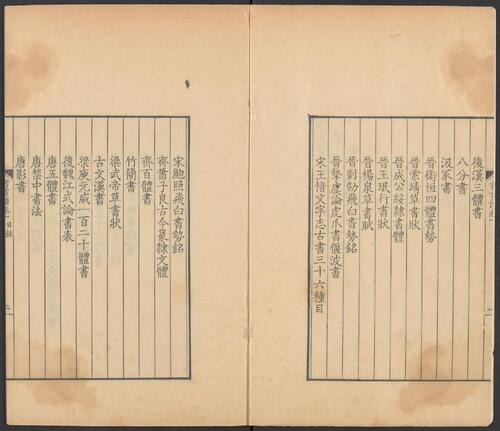 後漢三體書
八分書
汲冢書
晉衛恒四體書勢
晉索靖草書狀
晉成公綏隸書體
晉王珉行書狀
晉楊泉草書賦
晉劉劭飛白書勢銘
晉摯虞論虎爪書偃波書
宋王愔文字志古書三十六種目
宋鮑照飛白書勢銘
齊蕭子良古今篆隸文體
齊百體書
竹簡書
梁武帝草書狀
古文漢書
梁庾元威一百二十體書
後魏江式論書表
唐五體書
唐禁中書法
唐影書